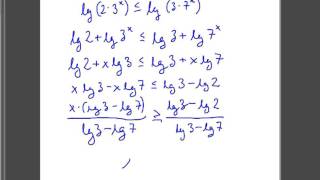 lg(2·3ˣ) ≤ lg(3·7ˣ)
lg2 + lg3ˣ ≤ lg3 + lg7ˣ
lg2 + x lg3 ≤ lg3 + x lg7
x lg3 − x lg7 ≤ lg3 − lg2
x·(lg3 − lg7) / lg3 − lg7 ≥ lg3 − lg2 / lg3 − lg7